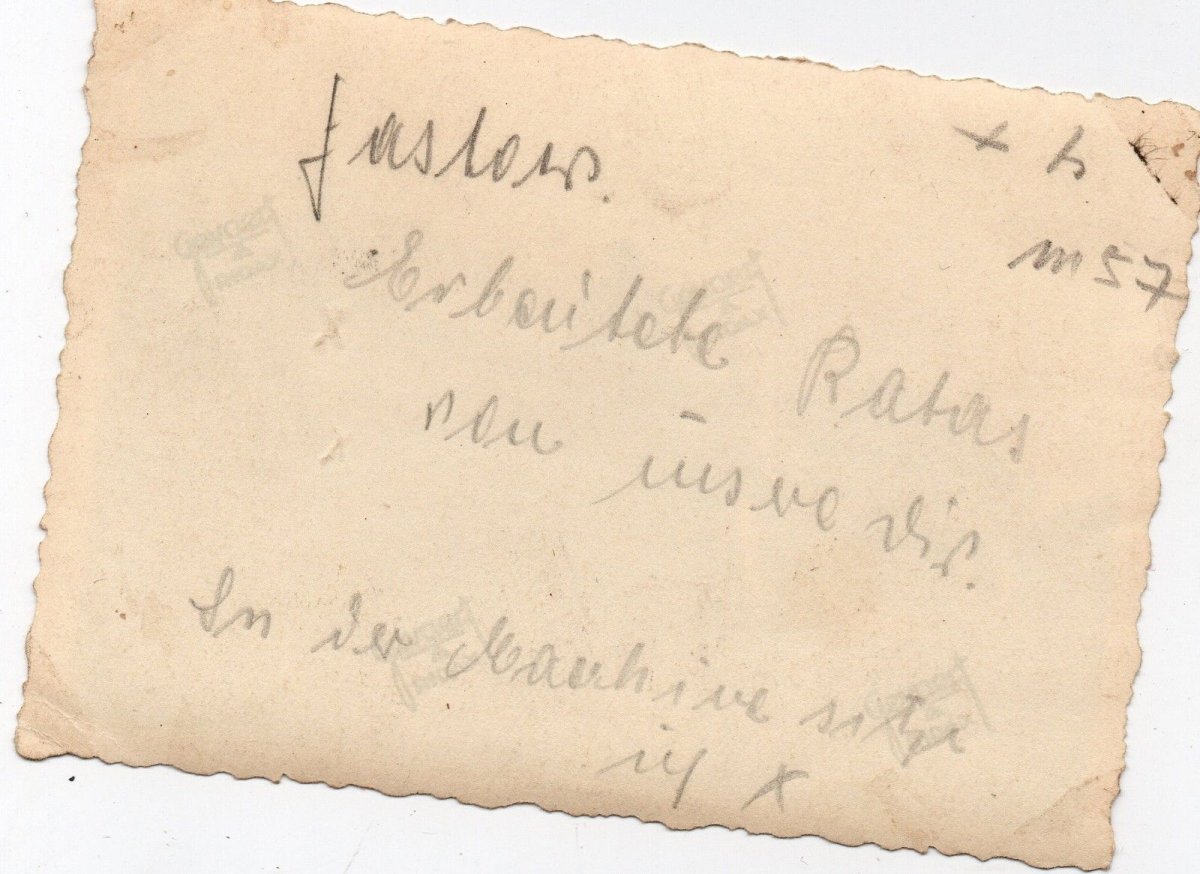 Jastow.
x b
m 57
Erbeutete Ratas
von unsre Div.
In der Maschine sitze
ich x